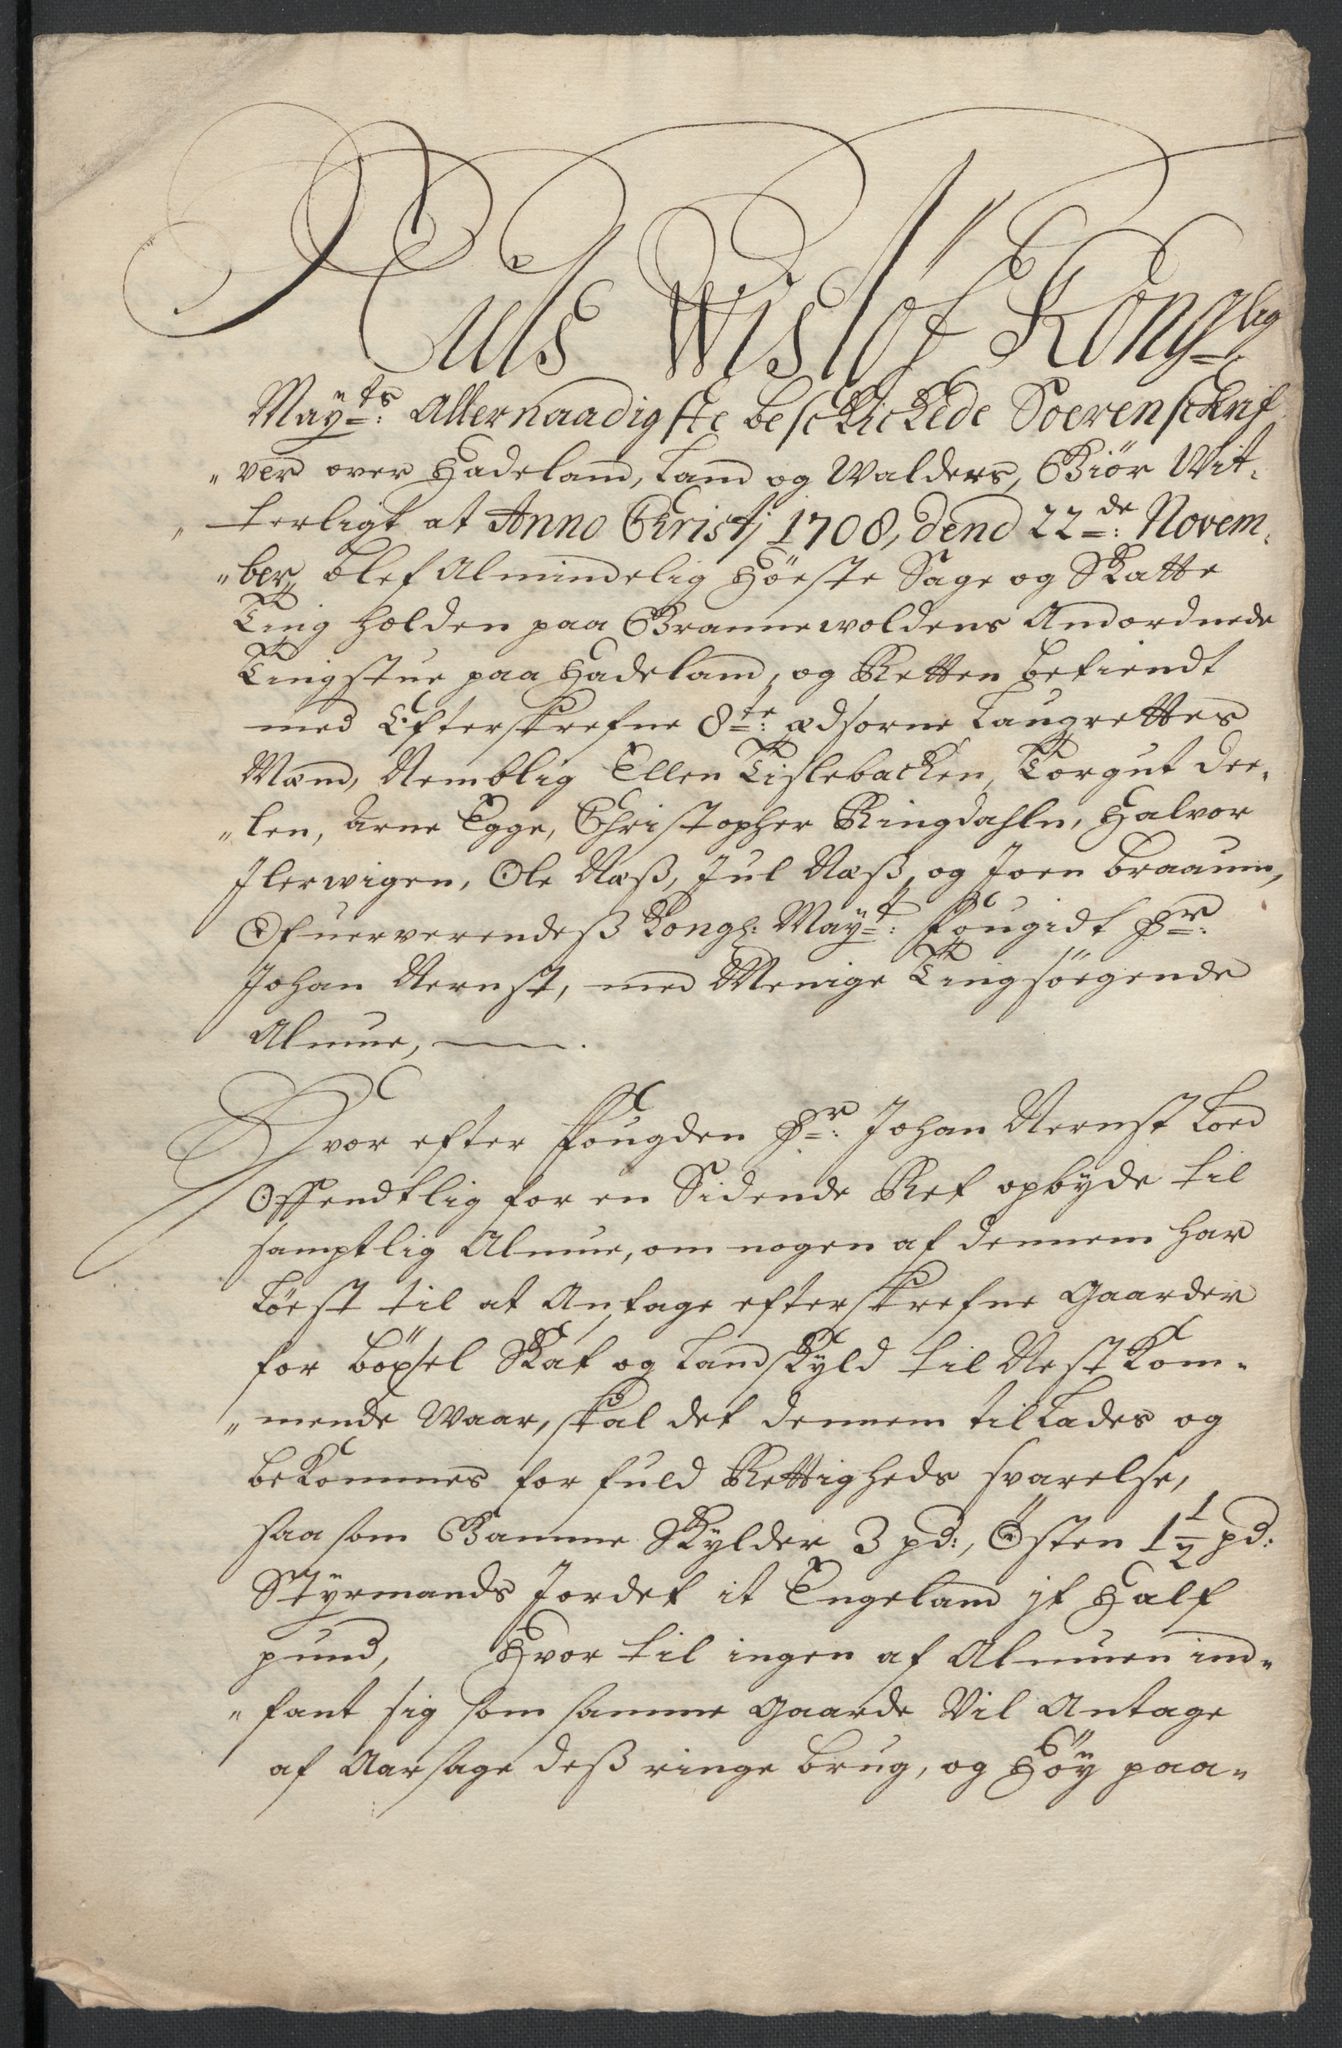 Nils Wisløf Kong=lig
May=ts: Allernaadigste beschickede Soerenschrif
„ver over Hadeland, Land og Walders, Giör Wit-
„terligt at Anno Christj 1708, dend 22=de: Novem-
„ber, blef Almindelig Höeste Sage og Skatte
Ting holden paa Grannewoldens Anordnede
Tingstue paa Hadeland, og Retten betiendt
med Efterskrefne 8=te: ædsorne Laugrettes
Mænd, Nemblig Ellen Tislebacken, Torgut Dee-
„len, Arne Egge, Christopher Ringdahln, Halvor
Jlerwigen, Ole Næß, Jul Næß, og Joen Braaum,
Ofuerverendeß Kongl: May=t: Fougidt Hr=:
Johan Nernst, med Menige Tingsöegende
Almue, ——.
Hvor efter Fougden Hr=: Johan Nernst Loed
Offendtlig for en Sidende Ret opbyde til
samptlig Almue, om nogen af dennem har
Löest til at Antage efterskrefne Gaarder
for böxsel Skat og Landskyld til Nest Kom-
„mende Waar, skal det dennem tillades og
bekommes for fuld Rettigheds svarelse,
saa som Gamme Skylder 3 pd:, Östen 1 1/2 pd:
Styrmands Jordet it Engeland jt Half
pund, Hvor til ingen af Almuen ind-
„fant sig som samme Gaarde Vil Antage
af Aarsage deß ringe brug, og Höy paa-